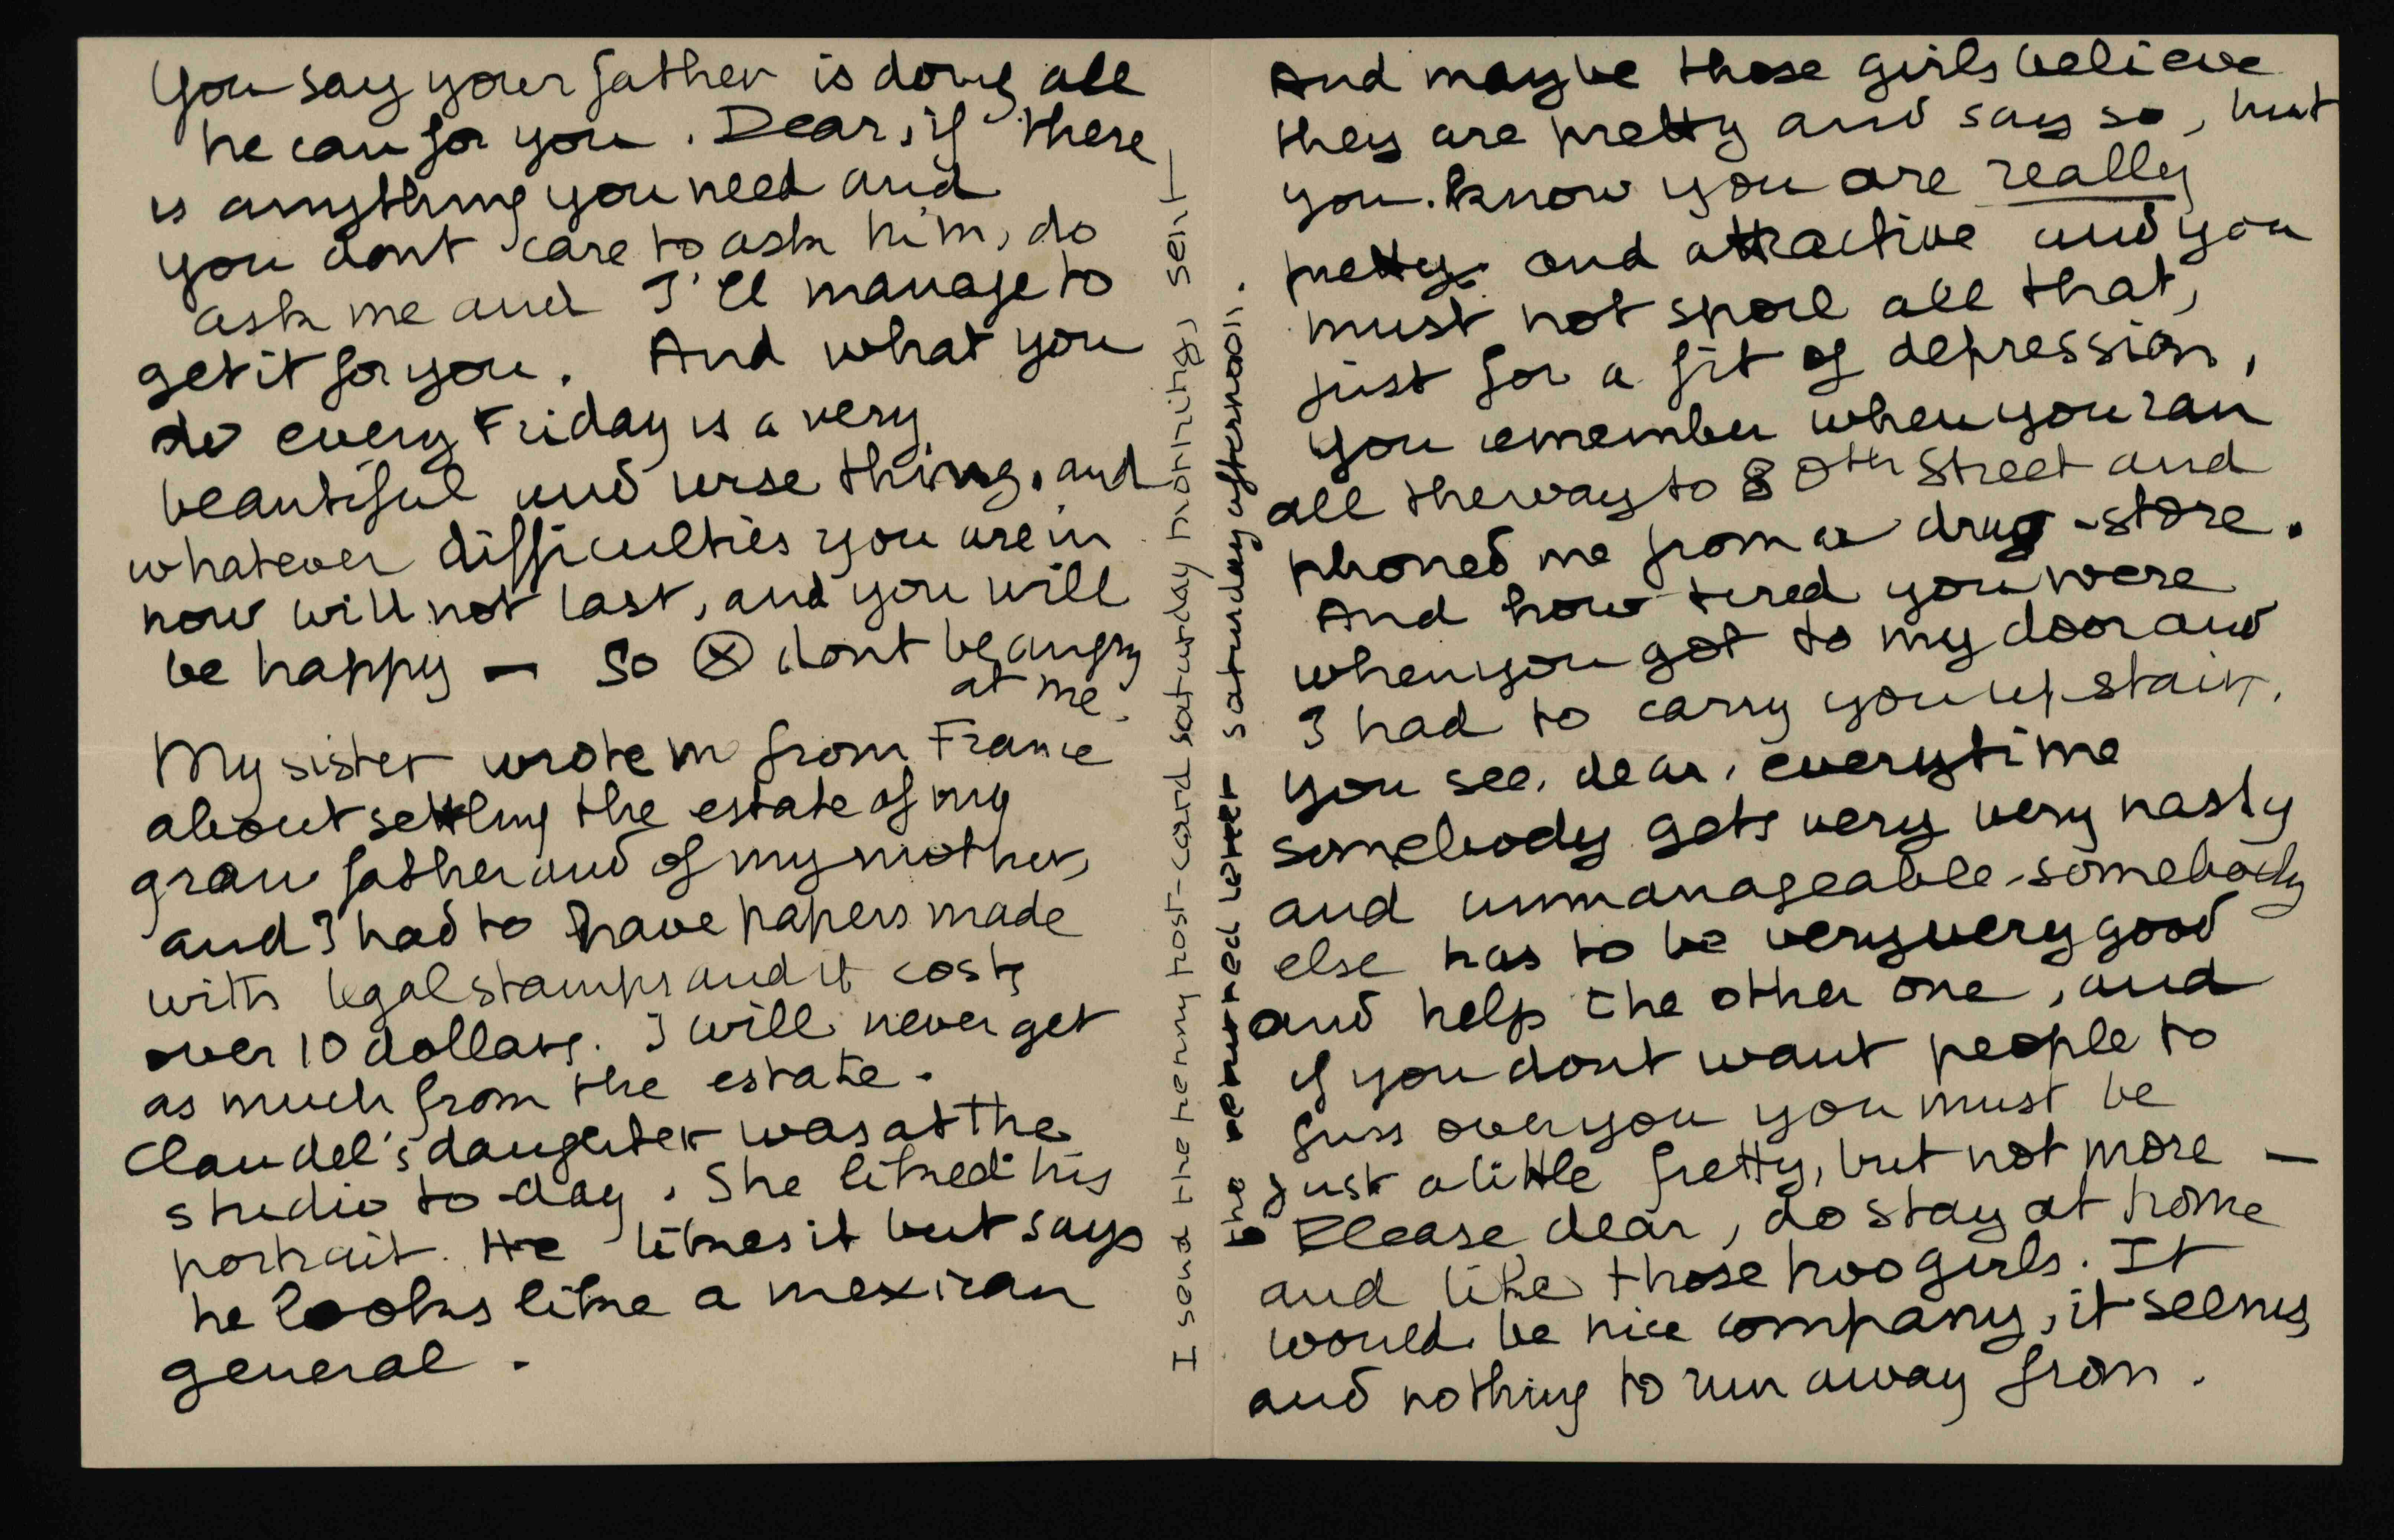 You say your father is doing all
he can for you. Dear, if there
is anything you need and
you dont care to ask him, do
ask me and I'll manage to
get it for you. And what you
do every Friday is a very
beautiful and wise thing, and
whatever difficulties you are in
now will not last, and you will
be happy — So ⊗ dont be angry
at me.
My sister wrote m from France
about settling the estate of my
gran father and of my mother,
and I had to have papers made
with legal stamps and it costs
over 10 dollars. I will never get
as much from the estate.
Claudel's daughter was at the
studio to-day. She liked his
portrait. He likes it but says
he looks like a mexican
general.
I send the penny post-card saturday morning, sent
the returned letter saturday afternoon.
And maybe those girls believe
they are pretty and say so, but
you know you are really
pretty and attractive and you
must not spoil all that,
just for a fit of depression,
you remember when you ran
all the way to 80th Street and
phoned me from a drug-store.
And how tired you were
when you got to my door and
I had to carry you up stairs.
You see, dear, everytime
somebody gets very very nasty
and unmanageable somebody
else has to be very very good
and help the other one, and
if you dont want people to
fuss over you you must be
just a little fretty, but not more —
Please dear, do stay at home
and like those two girls. It
would be nice company, it seems,
and nothing to run away from.